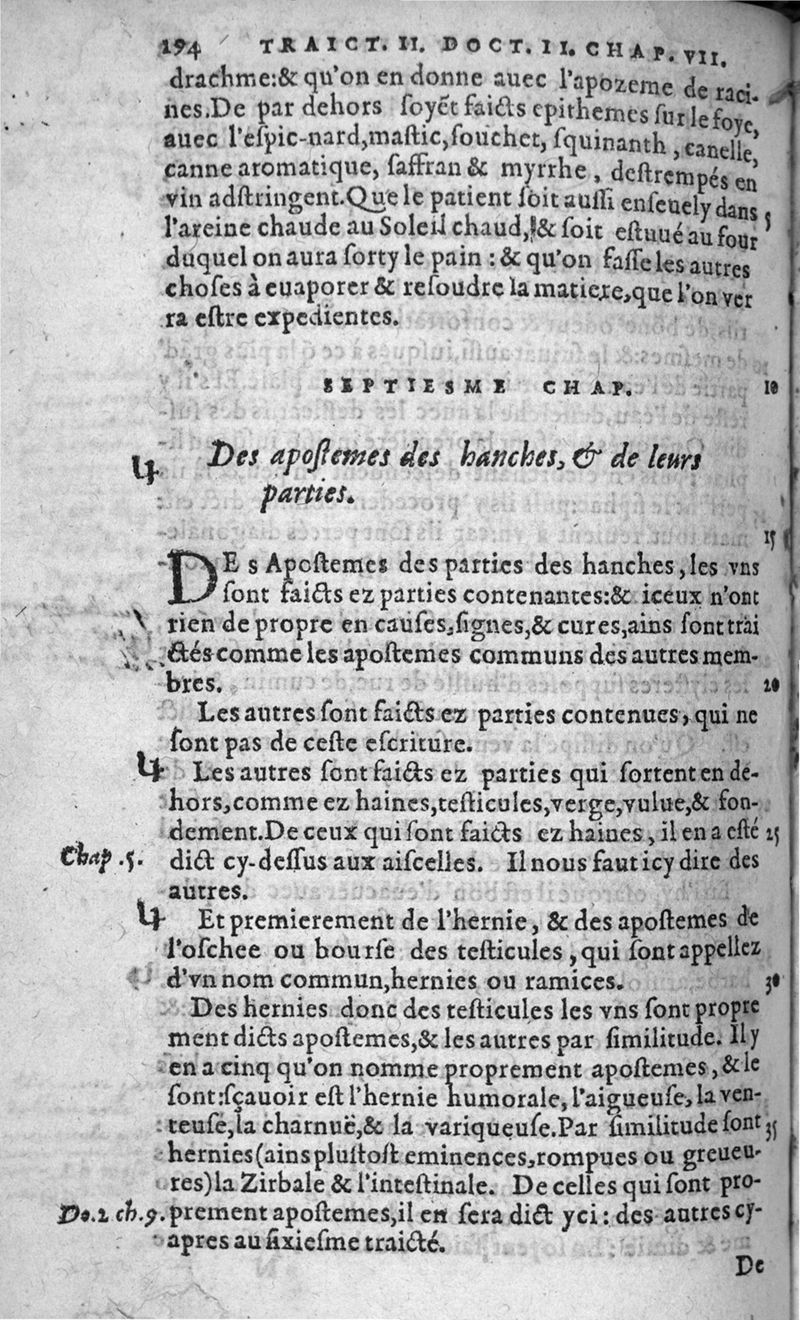 194 TRAICT. II. DOCT. II. CHAP. VII.
drachme:& qu'on en donne auec l'apozeme de raci-
nes.De par dehors ſoyẽt faicts epithemes ſur le foye,
auec l'eſpic-nard,maſtic,ſouchet, ſquinanth, canelle,
canne aromatique, ſaffran & myrrhe, deſtrempés en
vin adſtringent.Que le patient ſoit auſſi enſeuely dans
l'areine chaude au Soleil chaud,& ſoit eſtuué au four
duquel on aura ſorty le pain : & qu'on faſſe les autres
choſes à euaporer & reſoudre la matiere,que l'on ver
ra eſtre expedientes.
SEPTIESME CHAP. 10
Des apoſtemes des hanches, & de leurs
parties.
15
DEs Apoſtemes des parties des hanches,les vns
ſont faicts ez parties contenantes:& iceux n'ont
rien de propre en cauſes,ſignes,& cures,ains ſont trai
ctés comme les apoſtemes communs des autres mem-
bres. 20
Les autres ſont faicts ez parties contenues, qui ne
ſont pas de ceſte eſcriture.
Les autres ſont faicts ez parties qui ſortent en de-
hors,comme ez haines,teſticules,verge,vulue,& fon-
dement.De ceux qui ſont faicts ez haines, il en a eſté 25
Chap .5. dict cy-deſſus aux aiſcelles. Il nous faut icy dire des
autres.
Et premierement de l'hernie, & des apoſtemes de
l'oſchee ou bourſe des teſticules, qui ſont appellez
d'vn nom commun,hernies ou ramices. 30
Des hernies donc des teſticules les vns ſont propre
ment dicts apoſtemes,& les autres par ſimilitude. Il y
en a cinq qu'on nomme proprement apoſtemes, & le
ſont:ſçauoir eſt l'hernie humorale, l'aigueuſe, la ven-
teuſe,la charnuë,& la variqueuſe.Par ſimilitude ſont 35
hernies(ains pluſtoſt eminences,rompues ou greueu-
res)la Zirbale & l'inteſtinale. De celles qui ſont pro-
Do.2 ch.9. prement apoſtemes,il en ſera dict yci : des autres cy-
apres au ſixieſme traicté.
De